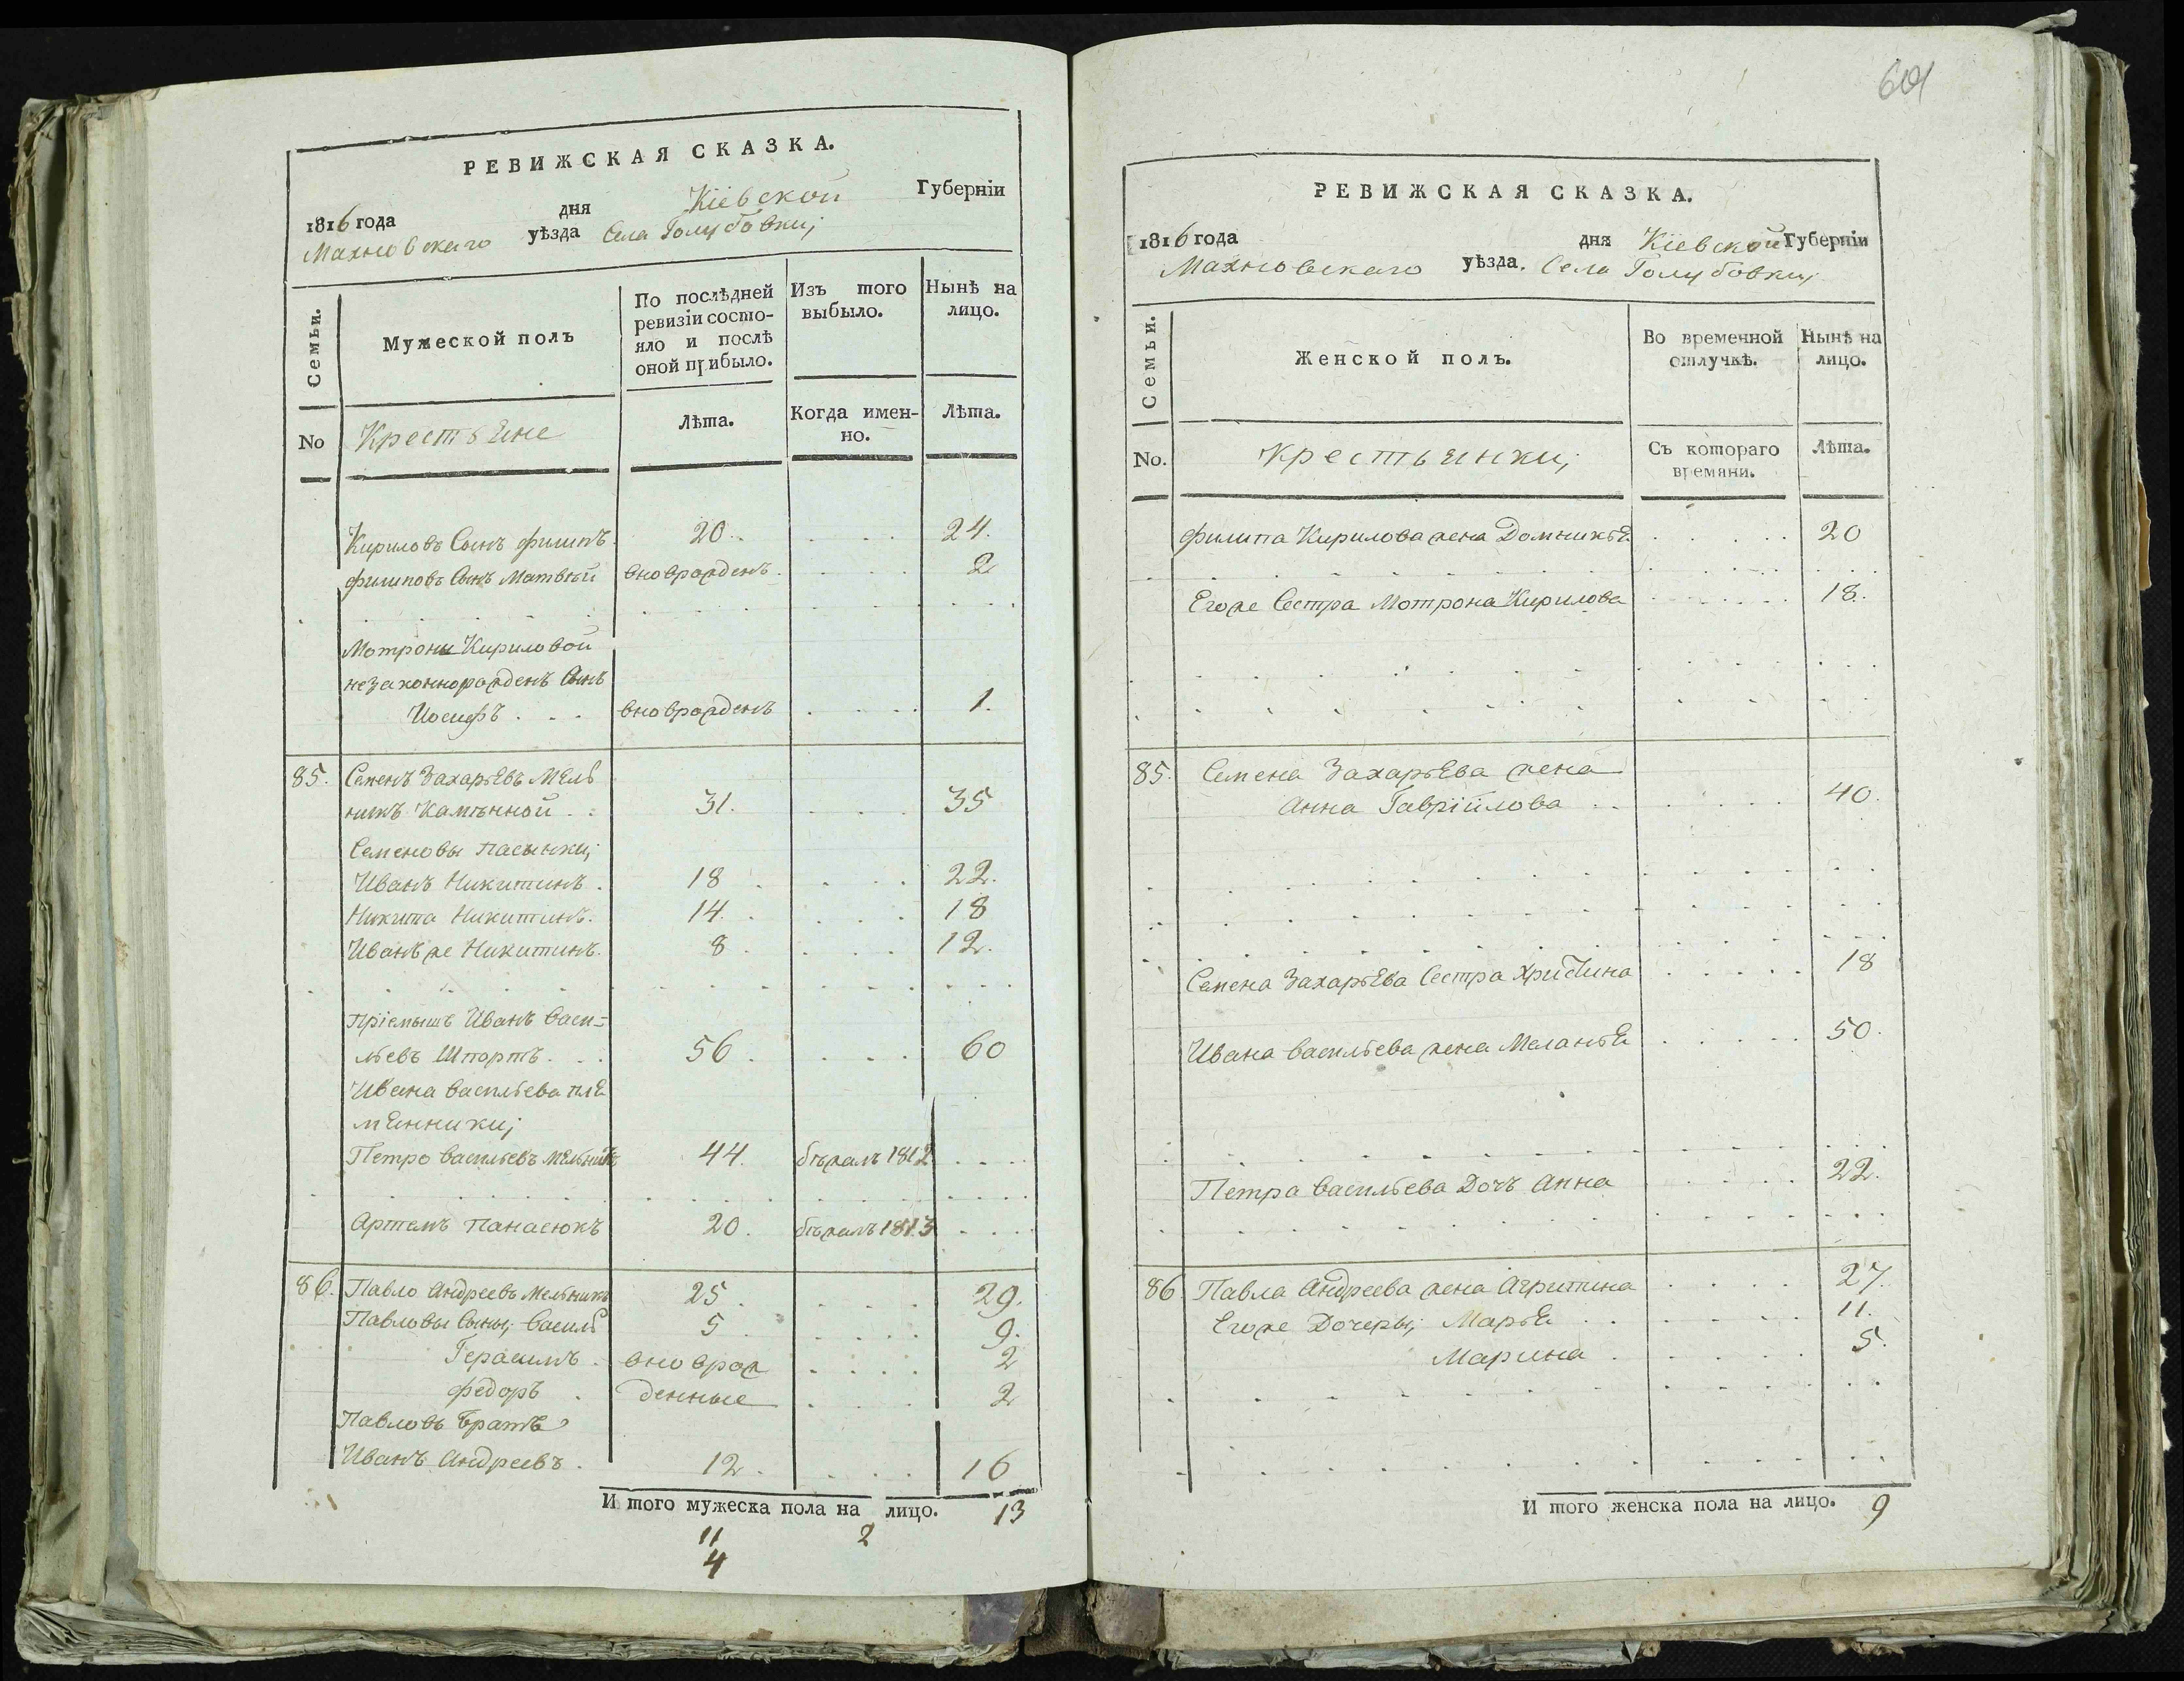 РЕВИЖСКАЯ СКАЗКА.
1816 года дня Кіевской Губерніи
Махновскаго уѣзда Села Голубовки;
Семьи.
Мужеской полъ
По послѣдней ревизіи состо-
яло и послѣ оной прибыло.
Изъ того выбыло.
Нынѣ на лицо.
No Крестьяне
Лѣта.
Когда имен-
но.
Лѣта.
Кириловъ Сынъ Филипъ. 20. 24.
Филиповъ Сынъ Матвѣй вноврожденъ. 2
Мотроны Кириловой
незаконнорожденъ Сынъ
Иосифъ вноврожденъ 1.
85. Семенъ Захарьевъ Мель
никъ Камѣнной 31. 35
Семеновы пасынки;
Иванъ Никитинъ. 18 22.
Никита Никитинъ. 14. 18
Иванъ же Никитинъ. 8 12.
Пріемышъ Иванъ Васи=
льевъ Шпортъ. 56. 60
Ивана Васильева пле
мянники;
Петро Васильевъ Мельникъ 44. бѣжалъ 1812
Артемъ Панасюкъ 20. бѣжалъ 1813
86. Павло Андреевъ Мельникъ 25. 29.
Павловы Сыны; Василь 5. 9.
Герасимъ. вноврож 2
Федоръ. денные 2
Павловъ Братъ
Иванъ Андреевъ. 12. 16
И того мужеска пола на лицо. 13
11 2
4
601
РЕВИЖСКАЯ СКАЗКА.
1816 года дня Кіевской Губерніи
Махновскаго уѣзда. Села Голубовки;
Семьи.
Женской полъ.
Во временной отлучкѣ.
Нынѣ на лицо.
No. Крестьянки;
Съ котораго времяни.
Лѣта.
Филипа Кирилова жена Домникья 20
Егоже Сестра Мотрона Кирилова 18.
85. Семена Захарьева жена
Анна Гавріилова 40.
Семена Захарьева Сестра Христина 18
Ивана Васильева жена Меланья 50.
Петра Васильева Дочь Анна 22.
86 Павла Андреева жена Агрипина 27.
Егоже Дочеры; Марья 11.
Марина 5.
И того женска пола на лицо. 9